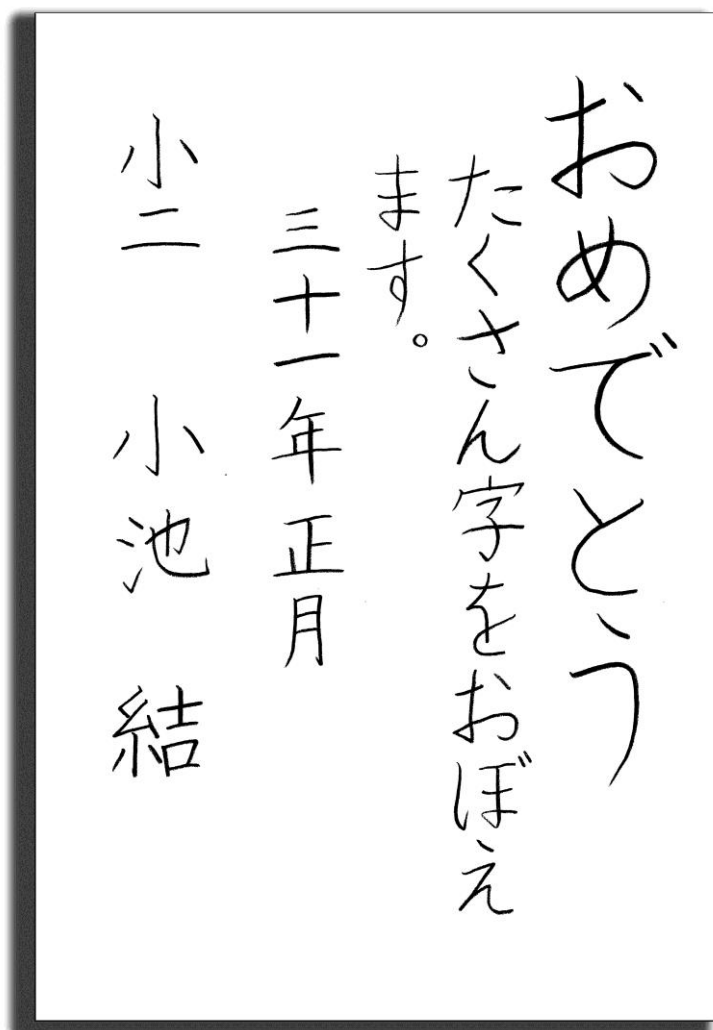 おめでとう
たくさん字をおぼえ
ます。
三十一年 正月
小二 小池 結